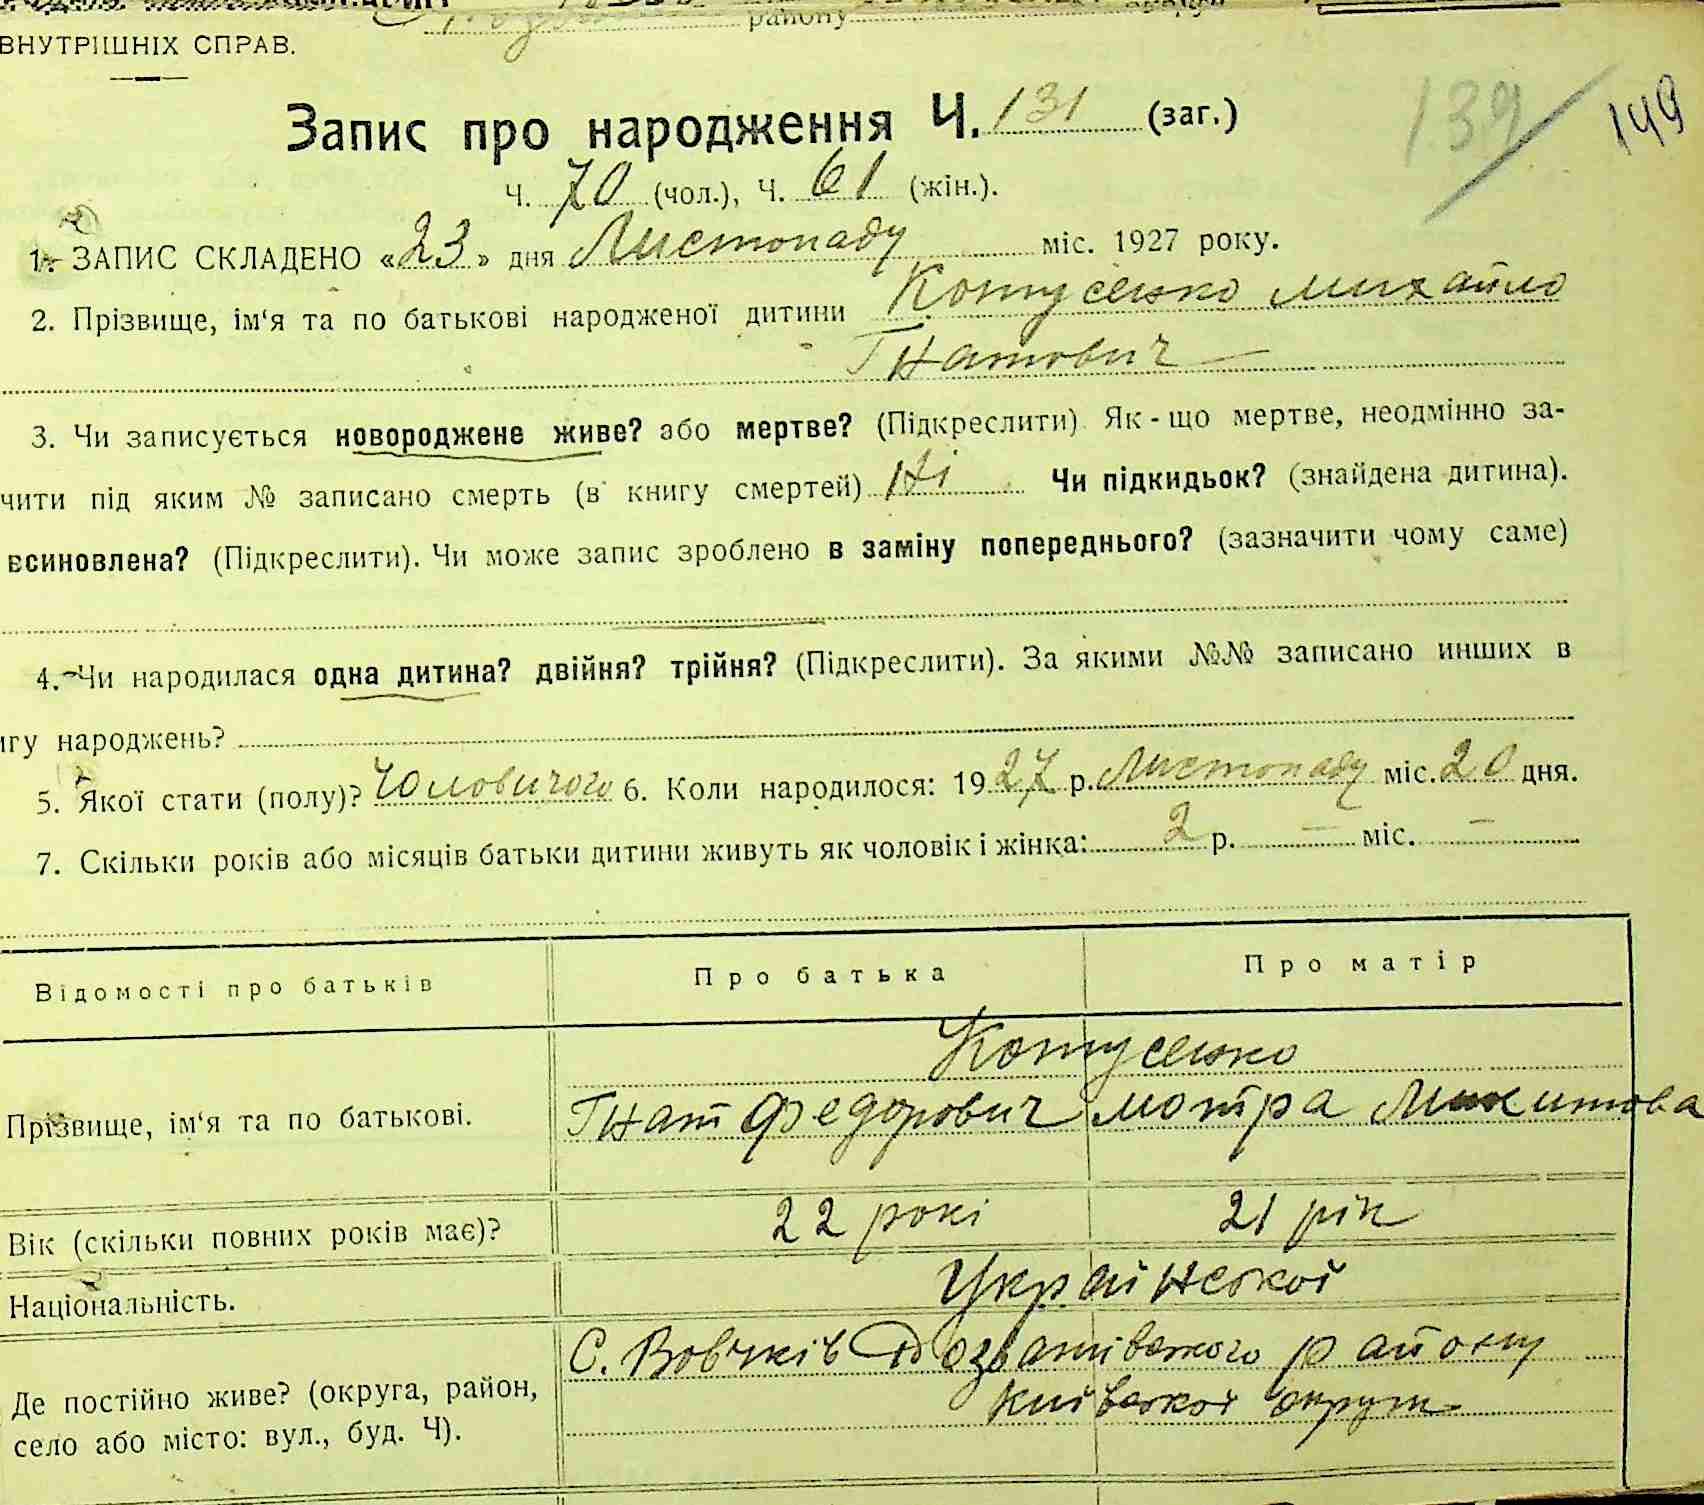 району
ВНУТРІШНІХ СПРАВ.
139 149
Запис про народження Ч. 131 (заг.)
Ч. 70 (чол.), Ч. 61 (жін.).
1. ЗАПИС СКЛАДЕНО «23» дня Листопаду міс. 1927 року.
2. Прізвище, ім‘я та по батькові народженої дитини Котусенко Михайло
Гнатович
3. Чи записується новороджене живе? або мертве? (Підкреслити) Як-що мертве, неодмінно за-
чити під яким № записано смерть (в книгу смертей) Ні Чи підкидьок? (знайдена дитина).
всиновлена? (Підкреслити). Чи може запис зроблено в заміну попереднього? (зазначити чому саме)
4. Чи народилася одна дитина? двійня? трійня? (Підкреслити). За якими №№ записано инших в
игу народжень?
5. Якої стати (полу)? Чоловичого 6. Коли народилося: 1927 р. Листопаду міс. 20 дня.
7. Скільки років або місяців батьки дитини живуть як чоловік і жінка: 2 р. — міс. —
Відомості про батьків Про батька Про матір
Котусенко
Прізвище, ім‘я та по батькові. Гнат Федорович Мотра Микитова
Вік (скільки повних років має)? 22 рокі 21 рік
Національність. Української
С. Вовчків району
Де постійно живе? (округа, район, Київської округи
село або місто: вул., буд. Ч).